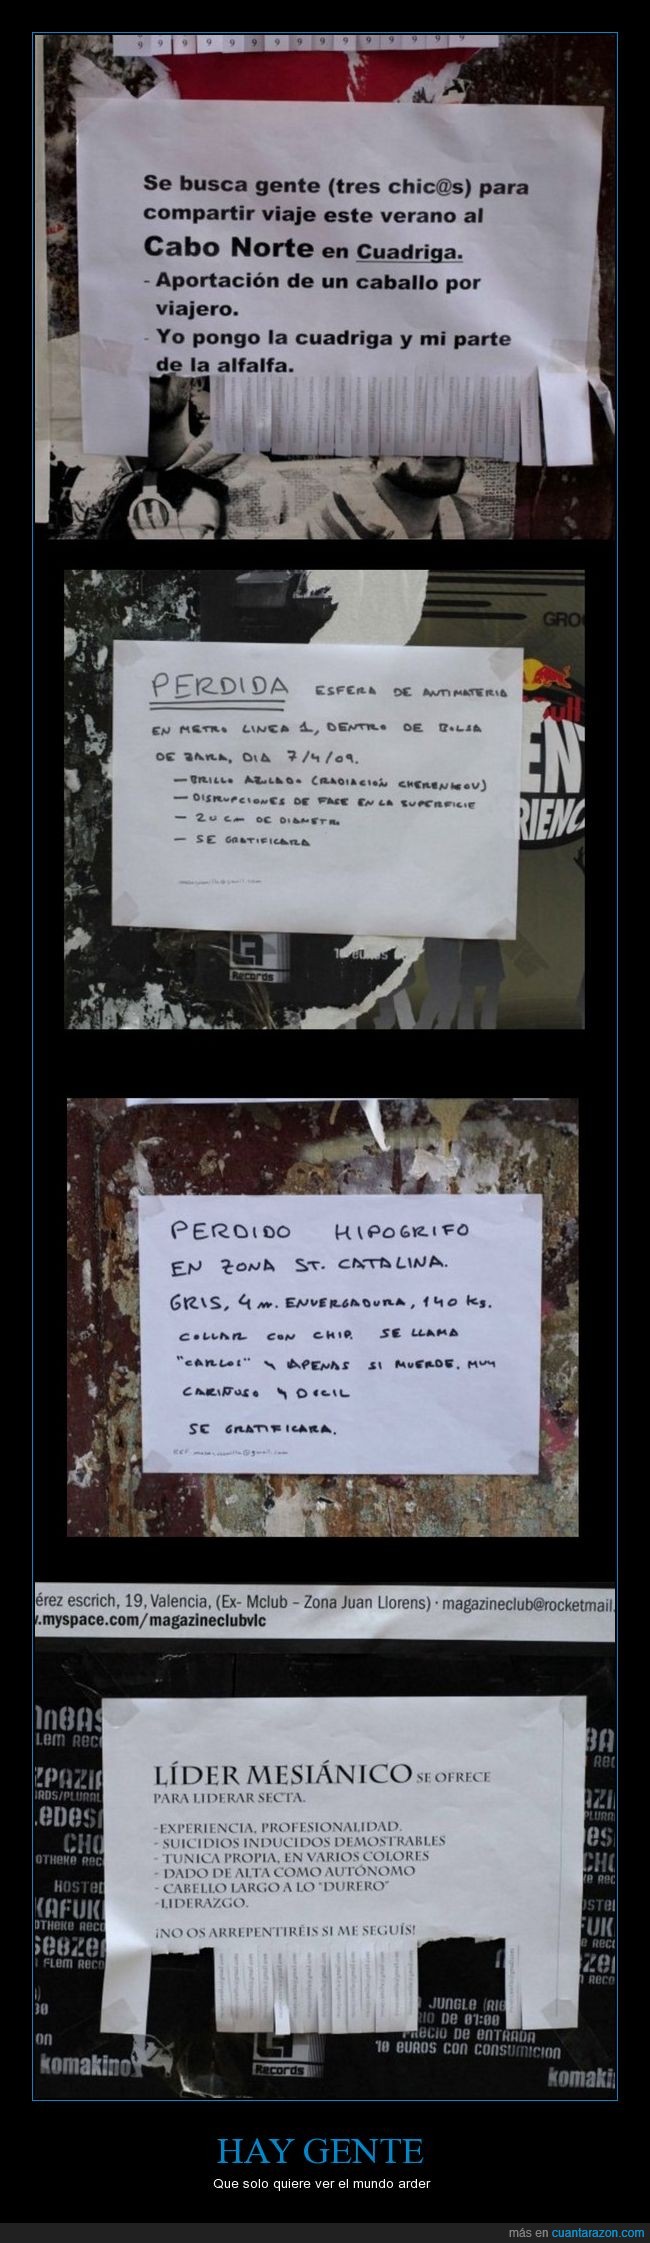 9 9 9 9 9 9 9 9 9 9 9 9 9
Se busca gente (tres chic@s) para
compartir viaje este verano al
Cabo Norte en Cuadriga.
- Aportación de un caballo por
viajero.
- Yo pongo la cuadriga y mi parte
de la alfalfa.
GRO
PERDIDA ESFERA DE ANTIMATERIA
EN METRO LINEA 1, DENTRO DE BOLSA
DE ZARA, DIA 7/4/09.
- BRILLO AZULADO (RADIACIÓN CHERENKOV)
- DISRUPCIONES DE FASE EN LA SUPERFICIE
- 20 CM DE DIAMETRO
- SE GRATIFICARA
Records
PERDIDO HIPOGRIFO
EN ZONA ST. CATALINA.
GRIS, 4 m. ENVERGADURA, 140 Ks.
COLLAR CON CHIP. SE LLAMA
"CARLOS" Y APENAS SI MUERDE. MUY
CARIÑOSO Y DOCIL
SE GRATIFICARA.
érez escrich, 19, Valencia, (Ex- Mclub – Zona Juan Llorens) · magazineclub@rocketmail.
.myspace.com/magazineclubvlc
LÍDER MESIÁNICO SE OFRECE
PARA LIDERAR SECTA.
-EXPERIENCIA, PROFESIONALIDAD.
- SUICIDIOS INDUCIDOS DEMOSTRABLES
- TUNICA PROPIA, EN VARIOS COLORES
- DADO DE ALTA COMO AUTÓNOMO
- CABELLO LARGO A LO "DURERO"
-LIDERAZGO.
¡NO OS ARREPENTIRÉIS SI ME SEGUÍS!
JUNGLE
DE 01:00
PRECIO DE ENTRADA
10 EUROS CON CONSUMICION
komakino
Records
komaki
HAY GENTE
Que solo quiere ver el mundo arder
más en cuantarazon.com